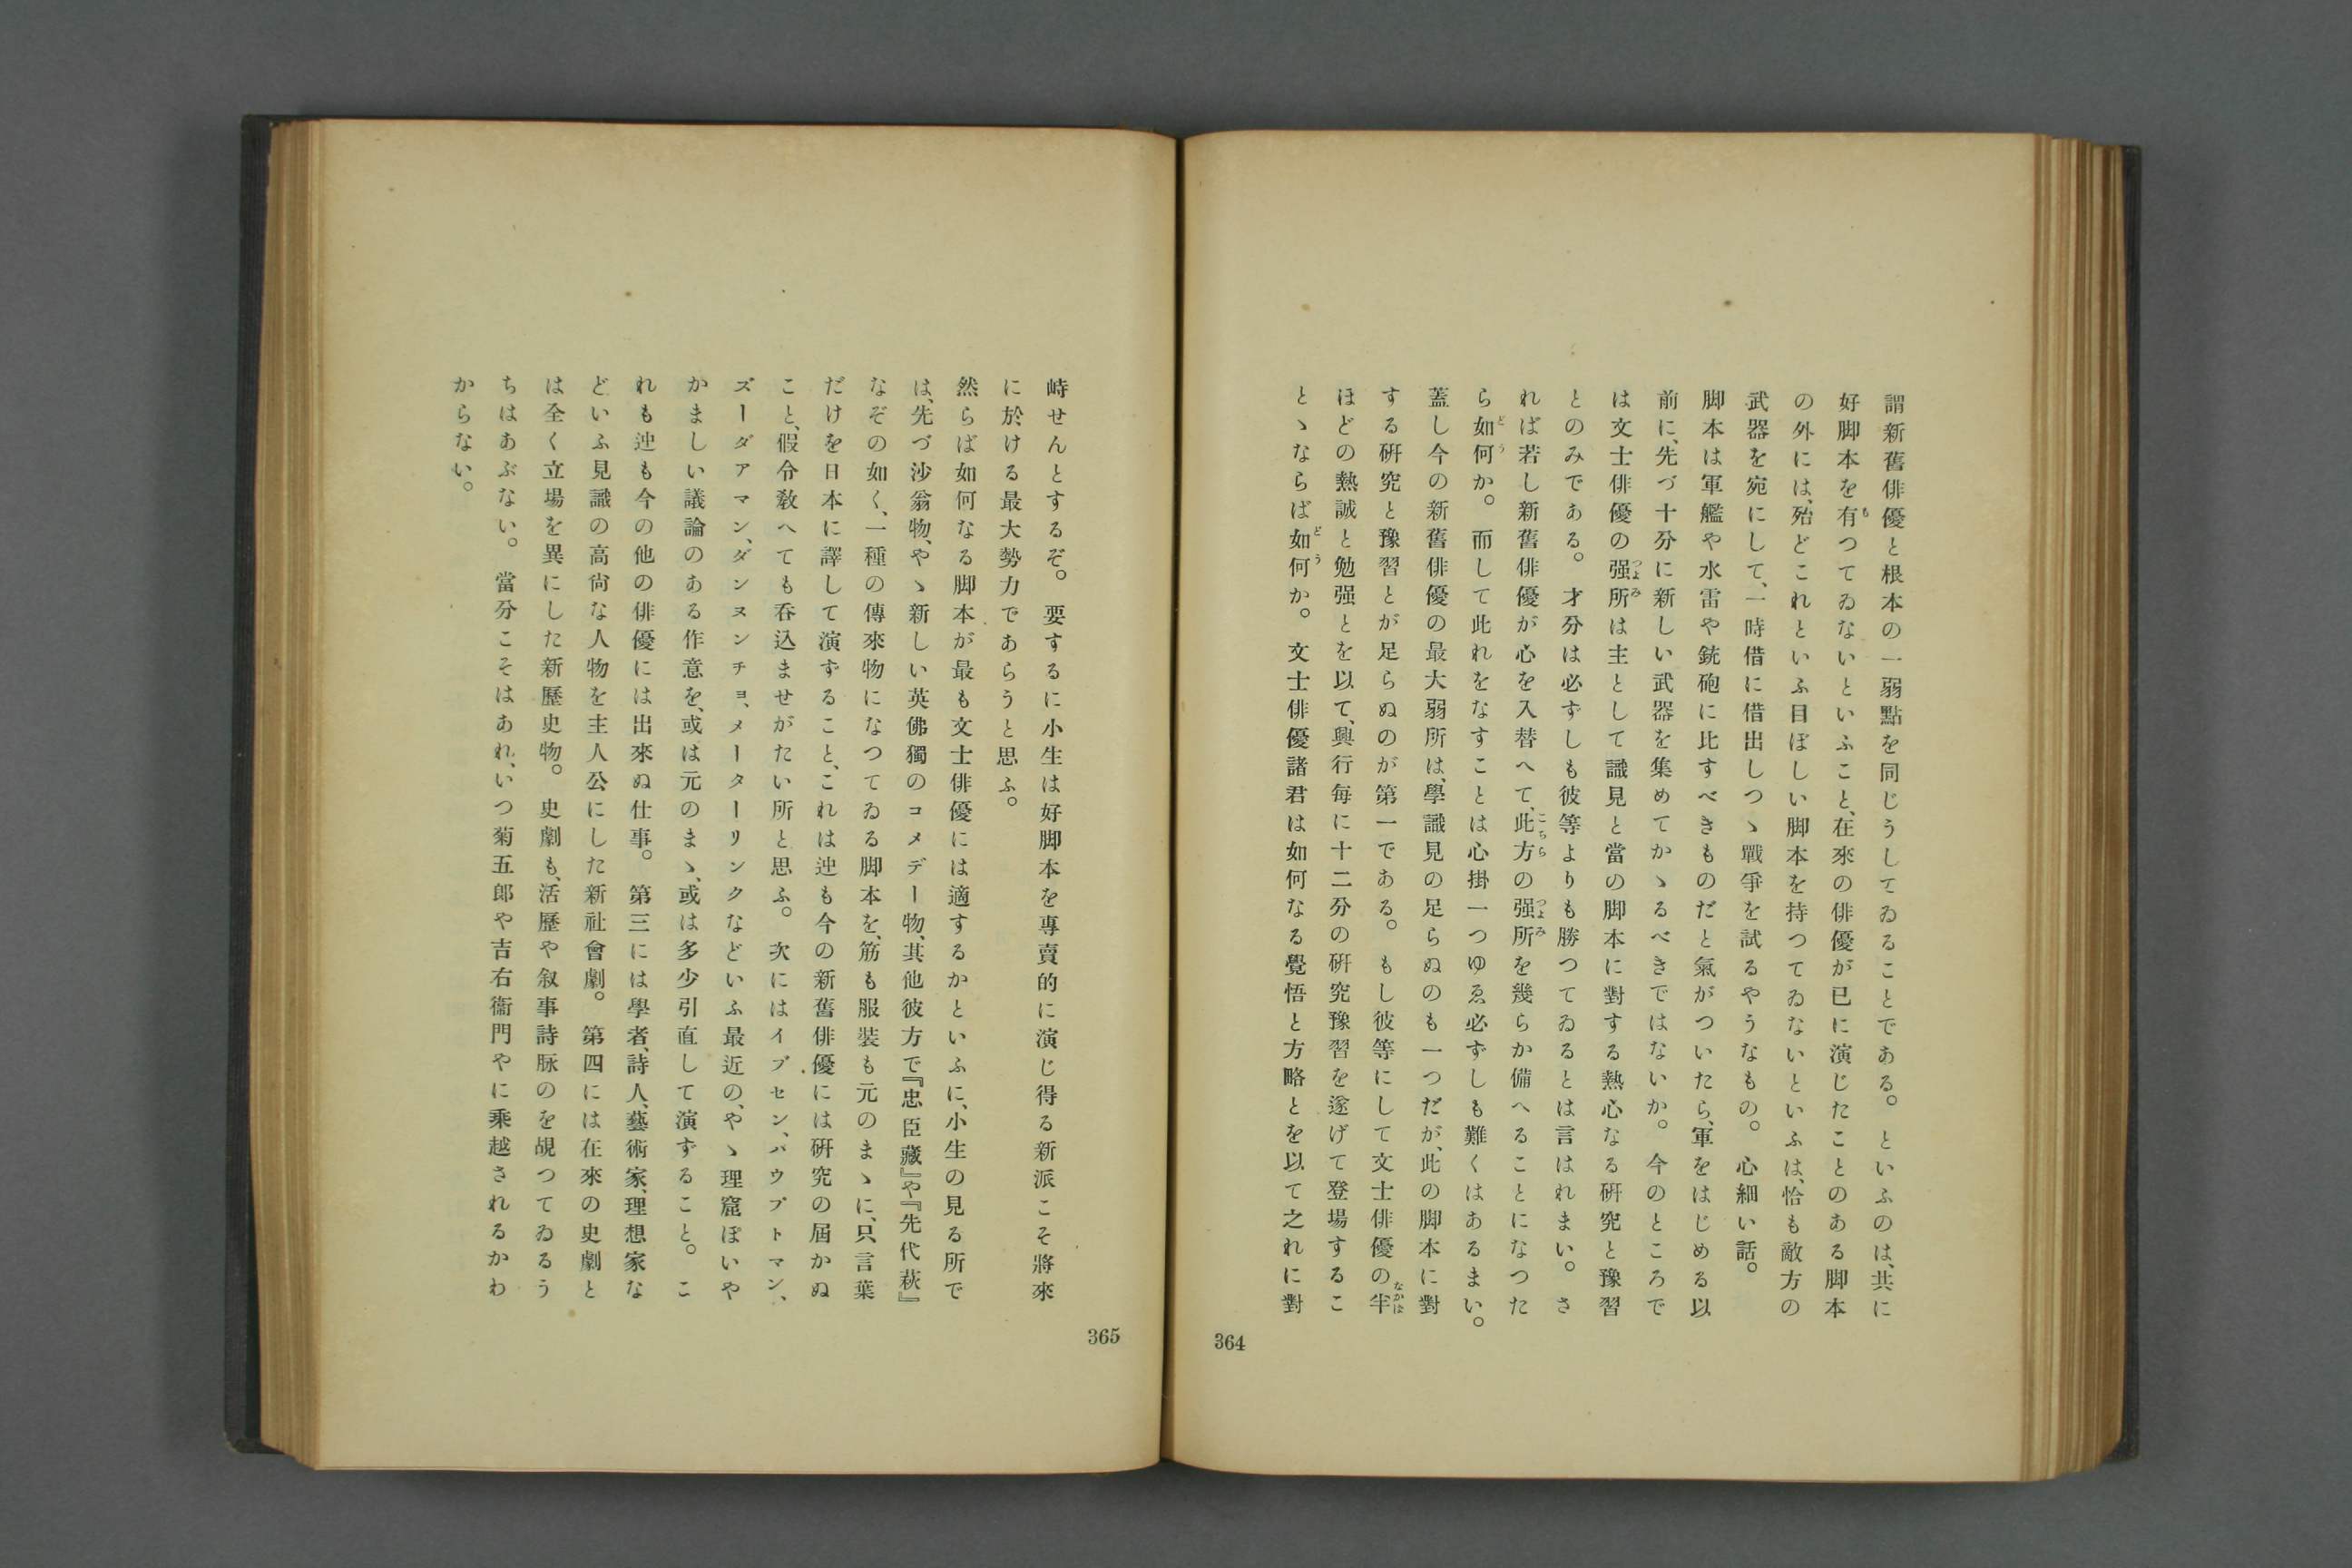 謂新舊俳優と根本の一弱點を同じうしてゐることである。といふのは、共に
好脚本を有つてゐないといふこと、在來の俳優が已に演じたことのある脚本
の外には、殆どこれといふ目ぼしい脚本を持つてゐないといふは、恰も敵方の
武器を宛にして、一時借に借出しつゝ戰爭を試るやうなもの。心細い話。
脚本は軍艦や水雷や銃砲に比すべきものだと氣がついたら、軍をはじめる以
前に、先づ十分に新しい武器を集めてかゝるべきではないか。今のところで
は文士俳優の强所は主として識見と當の脚本に對する熱心なる硏究と豫習
とのみである。才分は必ずしも彼等よりも勝つてゐるとは言はれまい。さ
れば若し新舊俳優が心を入替へて、此方の强所を幾らか備へることになつた
ら如何か。而して此れをなすことは心掛一つゆゑ必ずしも難くはあるまい。
蓋し今の新舊俳優の最大弱所は、學識見の足らぬのも一つだが、此の脚本に對
する硏究と豫習とが足らぬのが第一である。もし彼等にして文士俳優の半
ほどの熱誠と勉强とを以て、興行每に十二分の硏究豫習を遂げて登場するこ
とゝならば如何か。文士俳優諸君は如何なる覺悟と方略とを以て之れに對
364
峙せんとするぞ。要するに小生は好脚本を專賣的に演じ得る新派こそ將來
に於ける最大勢力であらうと思ふ。
然らば如何なる脚本が最も文士俳優には適するかといふに、小生の見る所で
は、先づ沙翁物、やゝ新しい英佛獨のコメデー物、其他彼方で『忠臣藏』や『先代萩』
なぞの如く、一種の傳來物になつてゐる脚本を、筋も服裝も元のまゝに、只言葉
だけを日本に譯して演ずること、これは迚も今の新舊俳優には硏究の屆かぬ
こと、假令敎へても呑込ませがたい所と思ふ。次にはイブセン、バウプトマン、
ズーダアマン、ダンヌンチヨ、メーターリンクなどいふ最近の、やゝ理窟ぽいや
かましい議論のある作意を、或は元のまゝ、或は多少引直して演ずること。こ
れも迚も今の他の俳優には出來ぬ仕事。第三には學者、詩人、藝術家、理想家な
どいふ見識の高尙な人物を主人公にした新社會劇。第四には在來の史劇と
は全く立場を異にした新歷史物。史劇も、活歷や叙事詩脈のを覘つてゐるう
ちはあぶない。當分こそはあれ、いつ菊五郎や吉右衞門やに乘越されるかわ
からない。
365